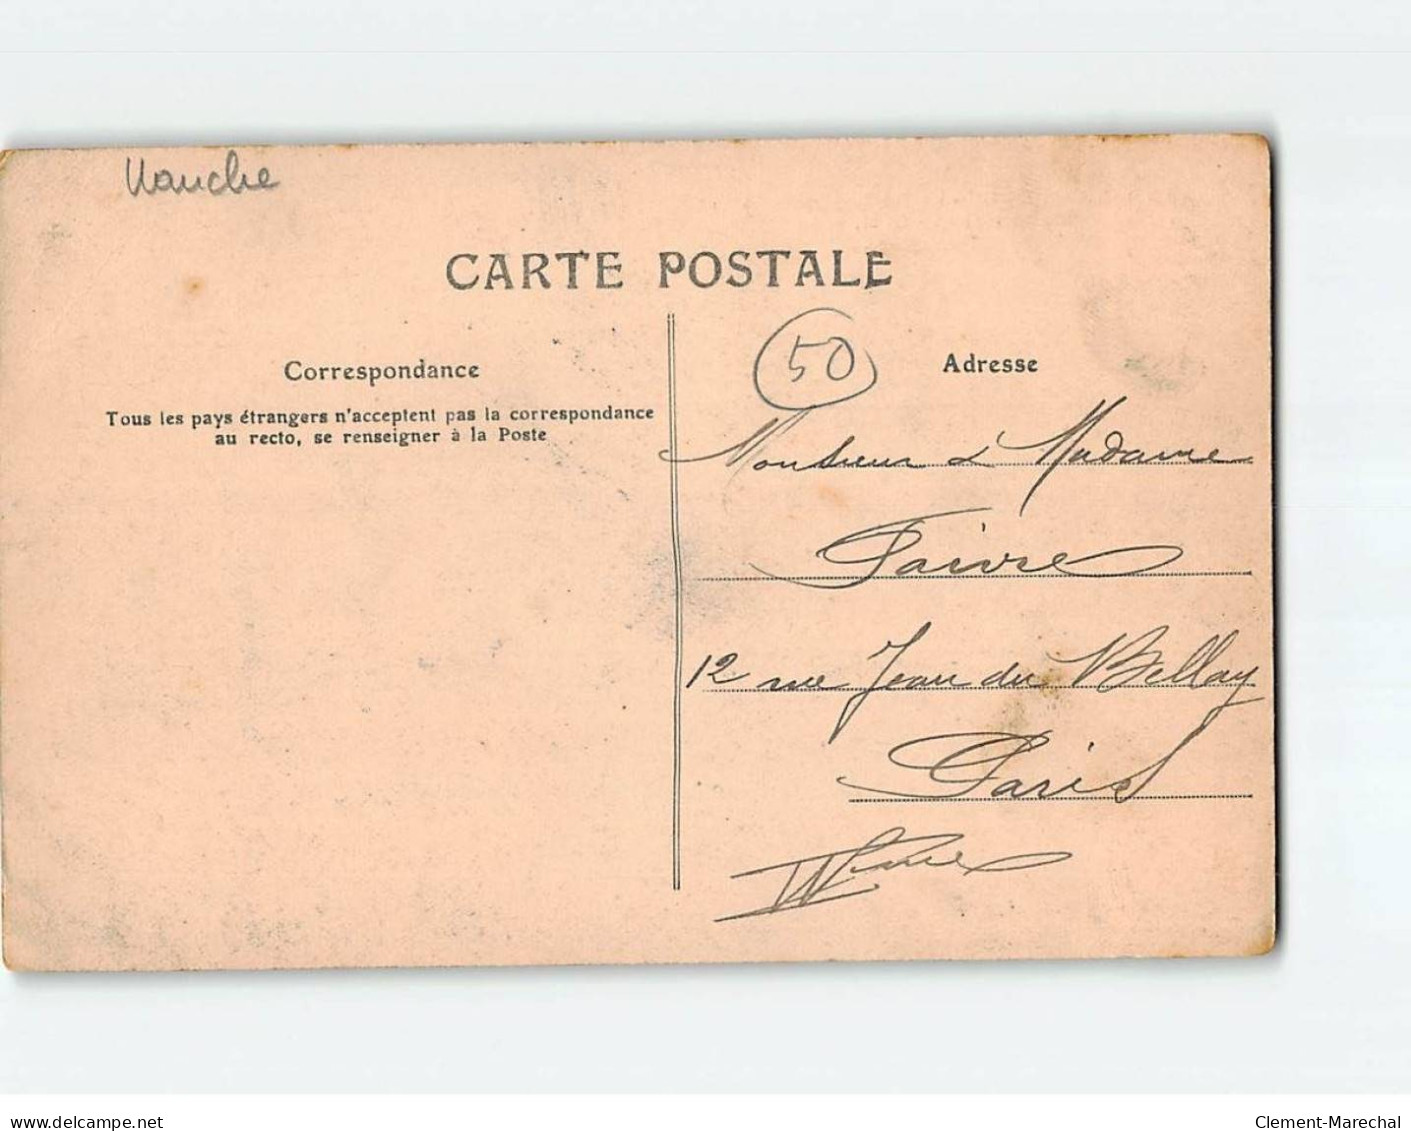 Manche
CARTE POSTALE
50
Correspondance
Adresse
Tous les pays étrangers n'acceptent pas la correspondance
au recto, se renseigner à la Poste
Monsieur & Madame
Faivre
12 rue Jean du Bellay
Paris
IVeme
www.delcampe.net
Clement-Marechal